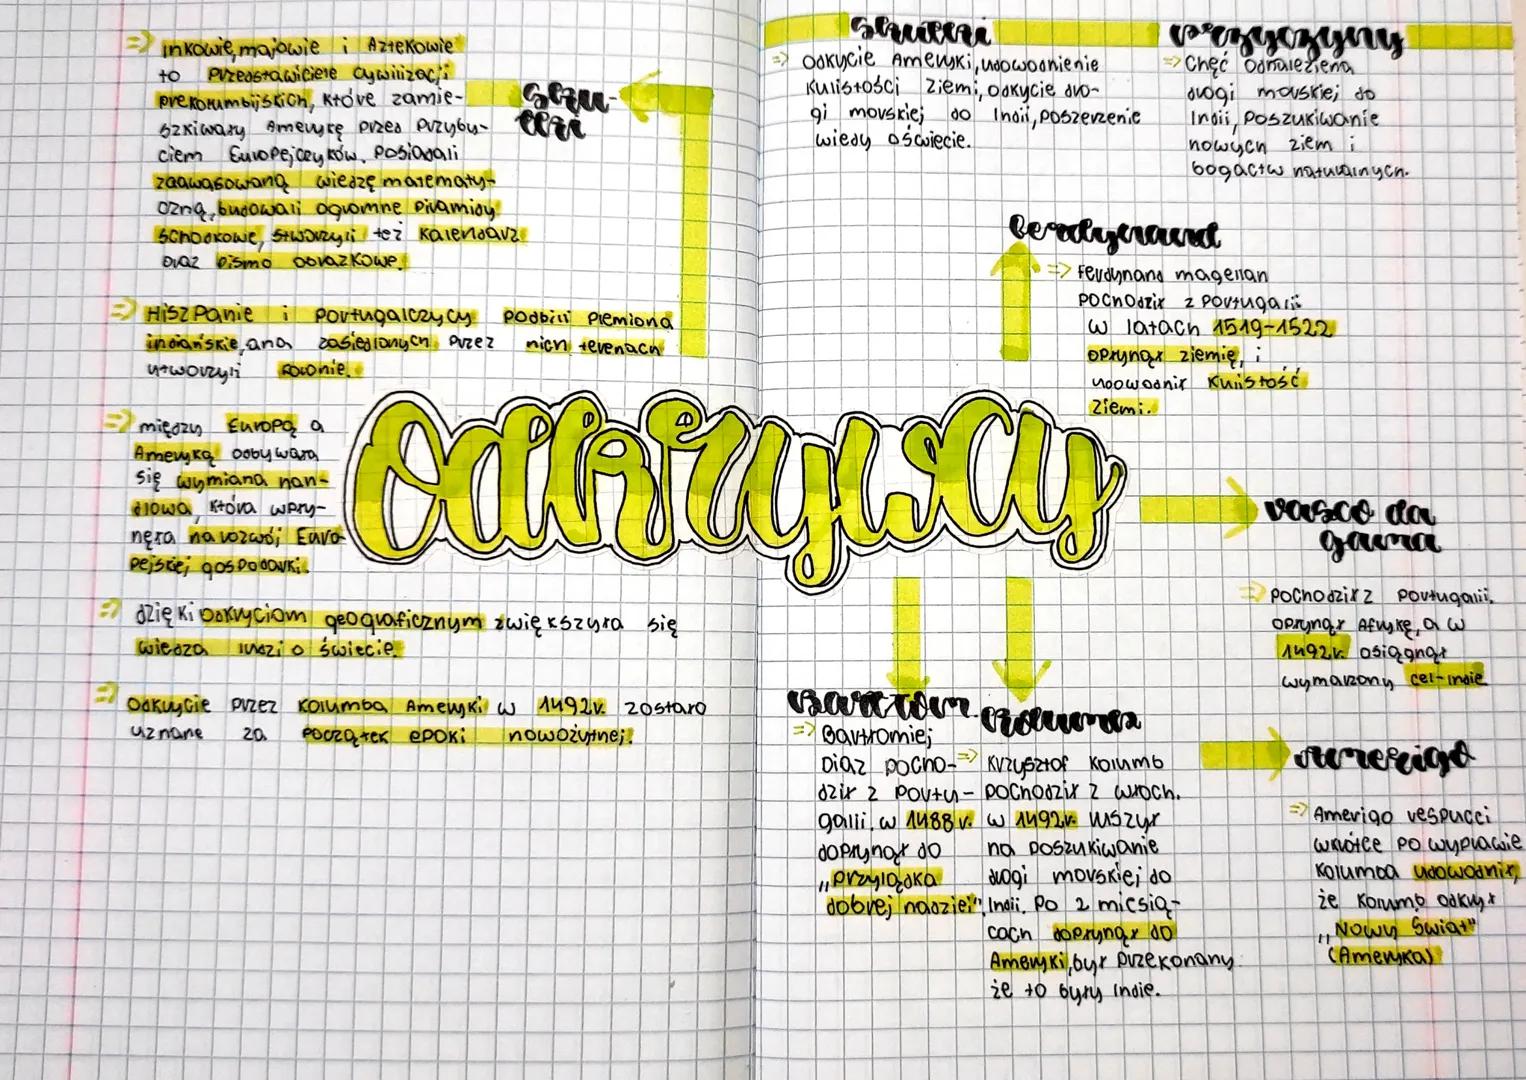 => inkowie, majowie i Aztekowie
to Przedstawiciele cywilizacji
prekolumbijskich, które zamie-
szkiwały Amerykę przed Przyby-
ciem Europejczyków. Posiadali
zaawasowaną wiedzę matematy-
czną, budowali ogromne Piramidy
schodkowe, stworzyli też kalendarz
oraz pismo obrazkowe.
=> Hiszpanie i portugalczycy podbili plemiona
indiańskie, a na zasiedlonych przez nich terenach
utworzyli kolonie.
=> między Europą a
Ameryką odbywała
się wymiana han-
dlowa, która wpły-
nęła na rozwój Euro-
pejskiej gospodarki.
=> dzięki odkryciom geograficznym zwiększyła się
wiedza ludzi o świecie.
=> Odkrycie przez Kolumba Ameryki w 1492r. zostało
uznane za początek epoki nowożytnej.
Odkrywcy
Skutki
=> odkycie Ameryki, udowodnienie
kulistości Ziemi, odkycie dro-
gi morskiej do Indii, poszerzenie
wiedy o świecie.
Przyczyny
=> Chęć odnaleziena
drogi morskiej do
Indii, Poszukiwanie
nowych ziem i
bogactw naturalnych.
Ferdynand
=> Ferdynand magellan
pochodził z Portugalii
w latach 1519-1522
opłynął ziemię, i
udowodnił kulistość
Ziemi.
vasco da
gama
=> pochodził z Portugalii.
opłynął Afrykę, a w
1492r. osiągnął
wymarzony cel-indie
Bartłom.
=> Bartłomiej
Diaz pocho-
dził z Portu-
galii. w 1488 r.
dopłynął do
„przylądka
dobrej nadziei"
Kolumb
=> Krzysztof Kolumb
pochodził z włoch.
w 1492r. wszył
na poszukiwanie
drogi morskiej do
Indii. Po 2 miesią-
cach dopłynął do
Ameryki, był przekonany
że to były Indie.
Amerigo
=> Amerigo vespucci
wkrótce po wyprawie
Kolumba udowodnił,
że Kolumb odkrył
„Nowy Świat"
(Ameryka)